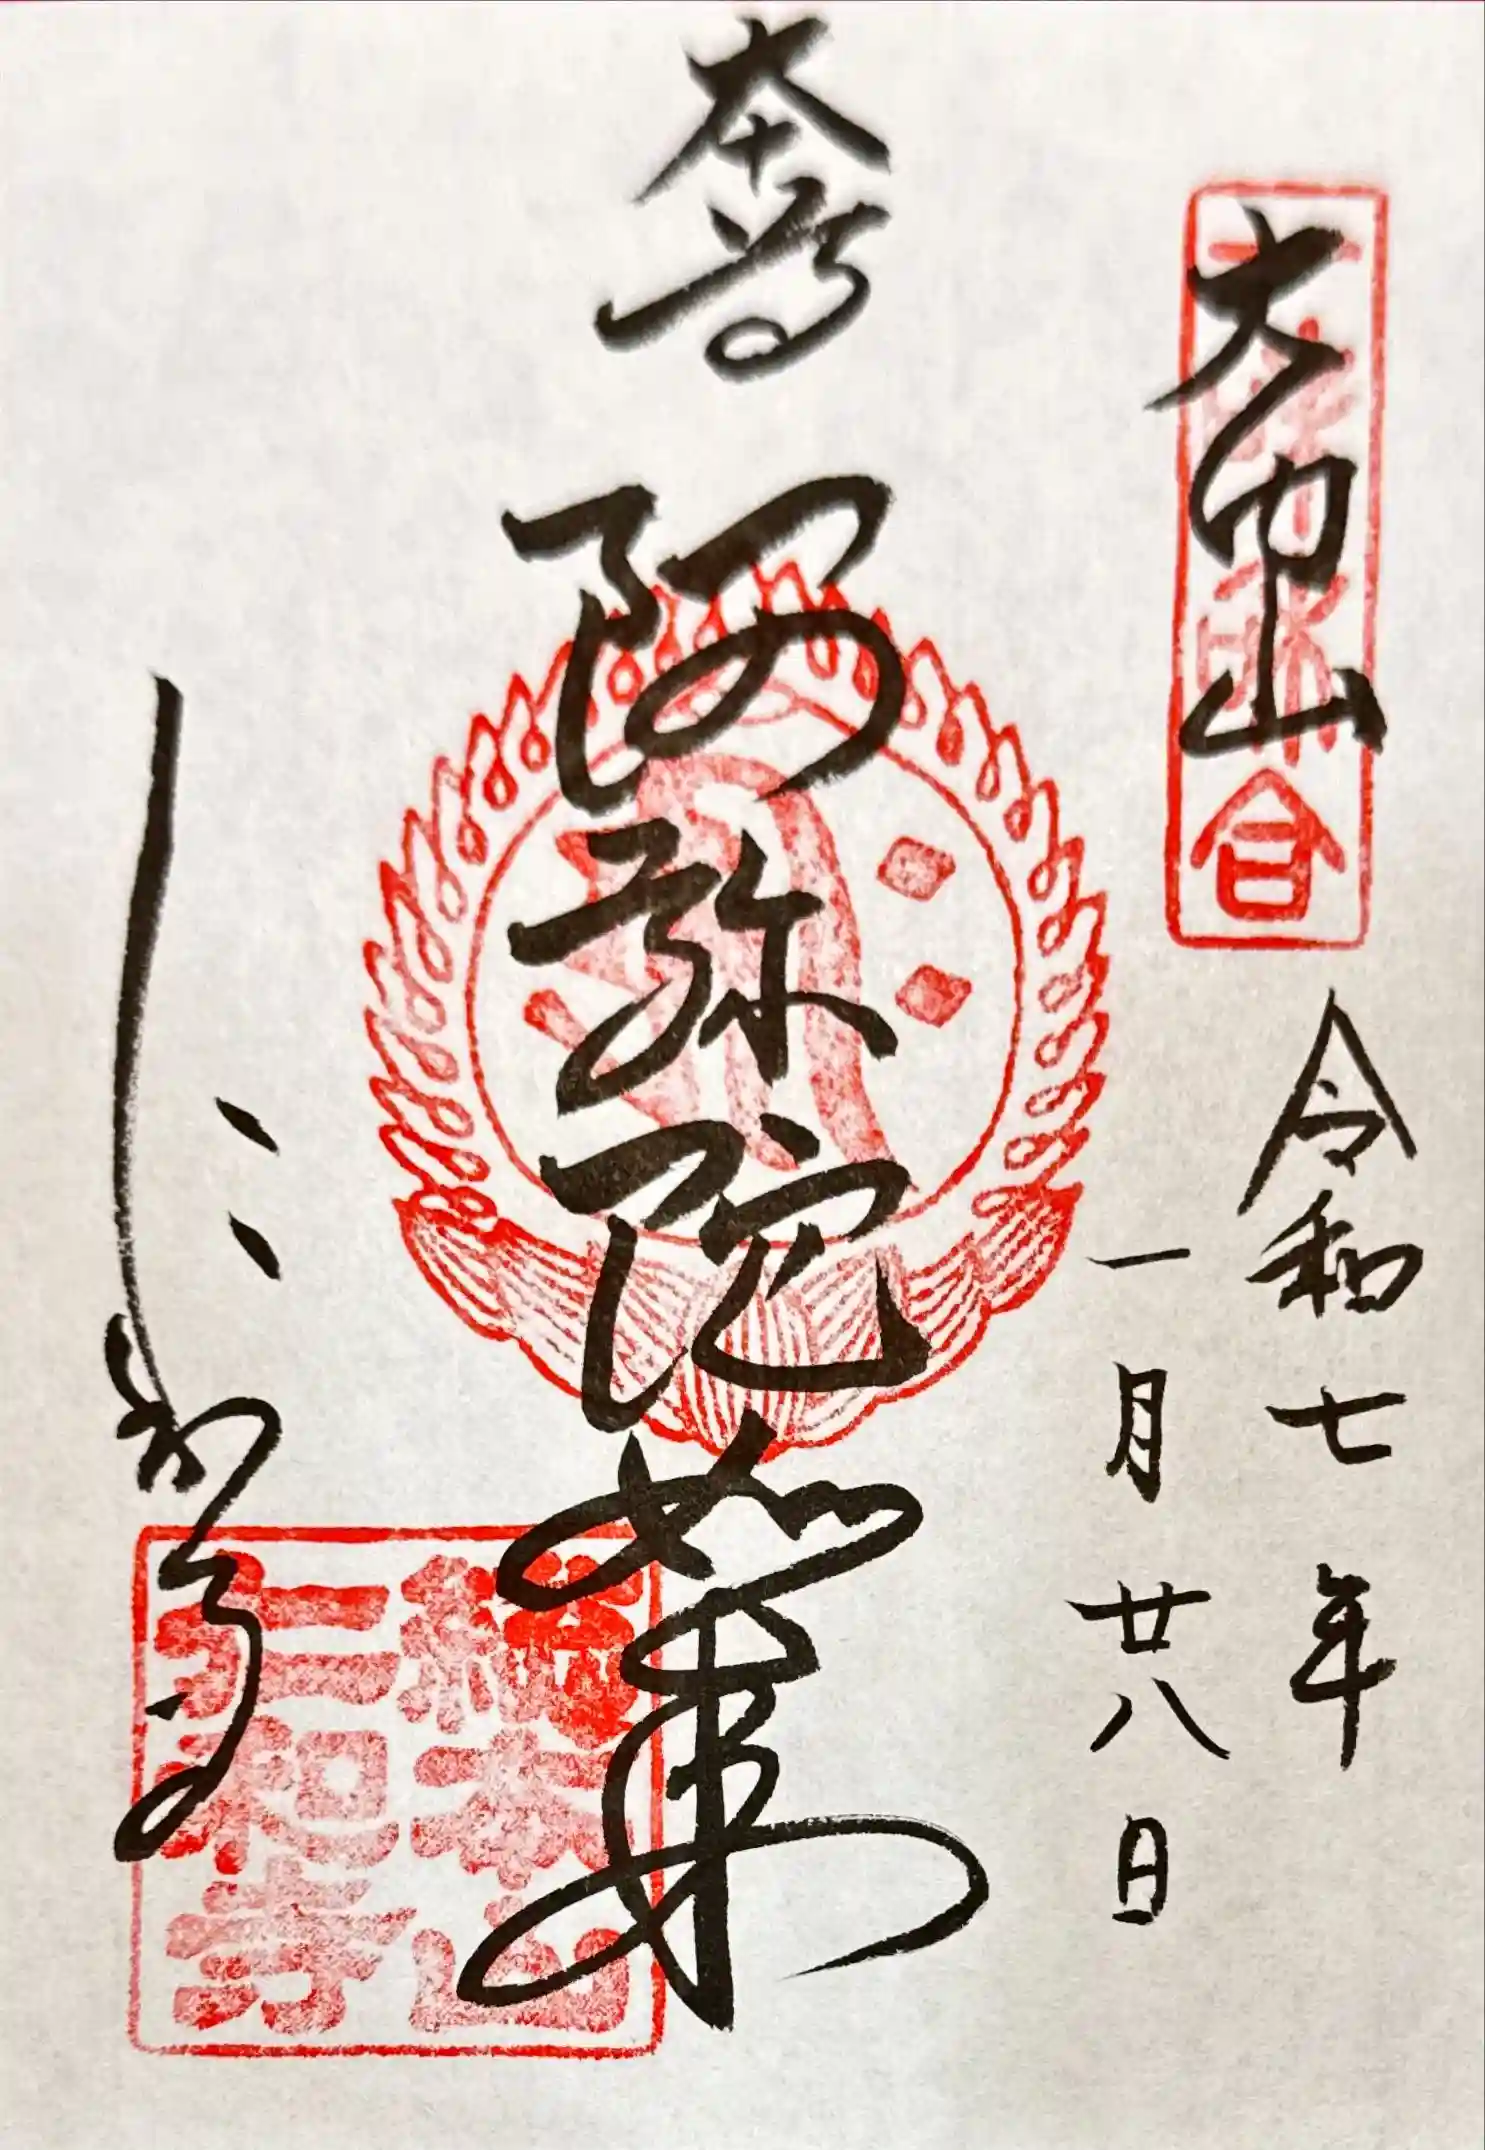 大内山
令和七年
一月廿八日
本尊
阿弥陀如来
仁和寺
總本山
仁和寺